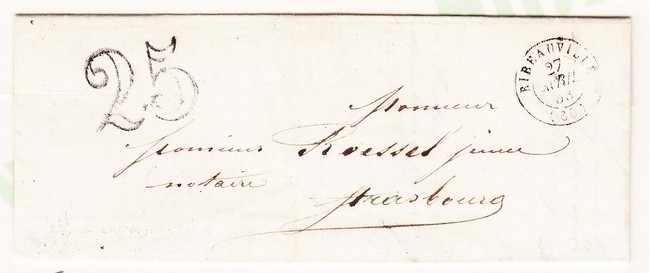 25
RIBEAUVILLE
27
AVRIL
53
(67)
Monsieur
Monsieur Roessel jeune
notaire
Strasbourg